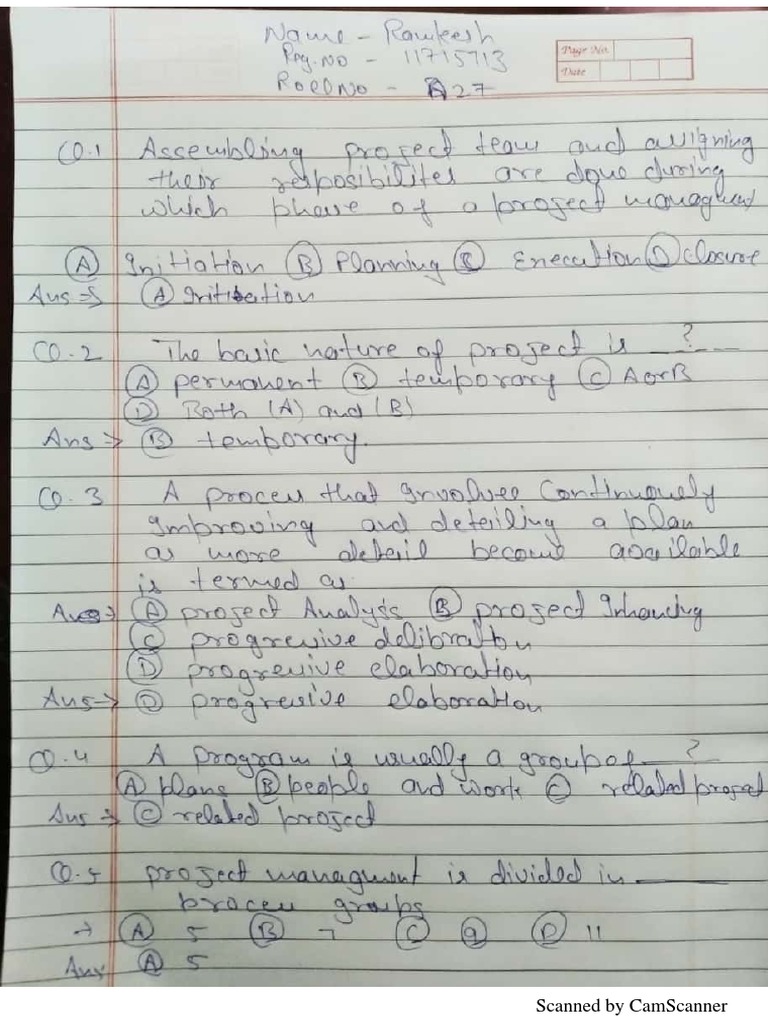 Name - Rawkesh
Page No.
Reg.No - 11715713
Date
Roll No - A27
Q.1 Assembling project team and assigning
their resposibilites are done during
which phase of a project managment
(A) Initiation (B) Planning (C) Execution (D) closure
Ans => (A) Initiation
Q.2 The basic nature of project is __?__
(A) permanent (B) temporary (C) A or B
(D) Both (A) and (B)
Ans -> (B) temporary.
Q.3 A process that involves Continuously
improving and deteiling a plan
as more deteil become available
is termed as
Ans -> (A) project Analysis (B) project
(C) progressive
(D) progressive elaboration
Ans -> (D) progressive elaboration
Q.4 A program is usually a group of __?__
(A) plans (B) people and work (C) related project
Ans -> (C) related project
Q.5 project managment is divided in ____
process groups
-> (A) 5 (B) 7 (C) 9 (D) 11
Ans (A) 5
Scanned by CamScanner